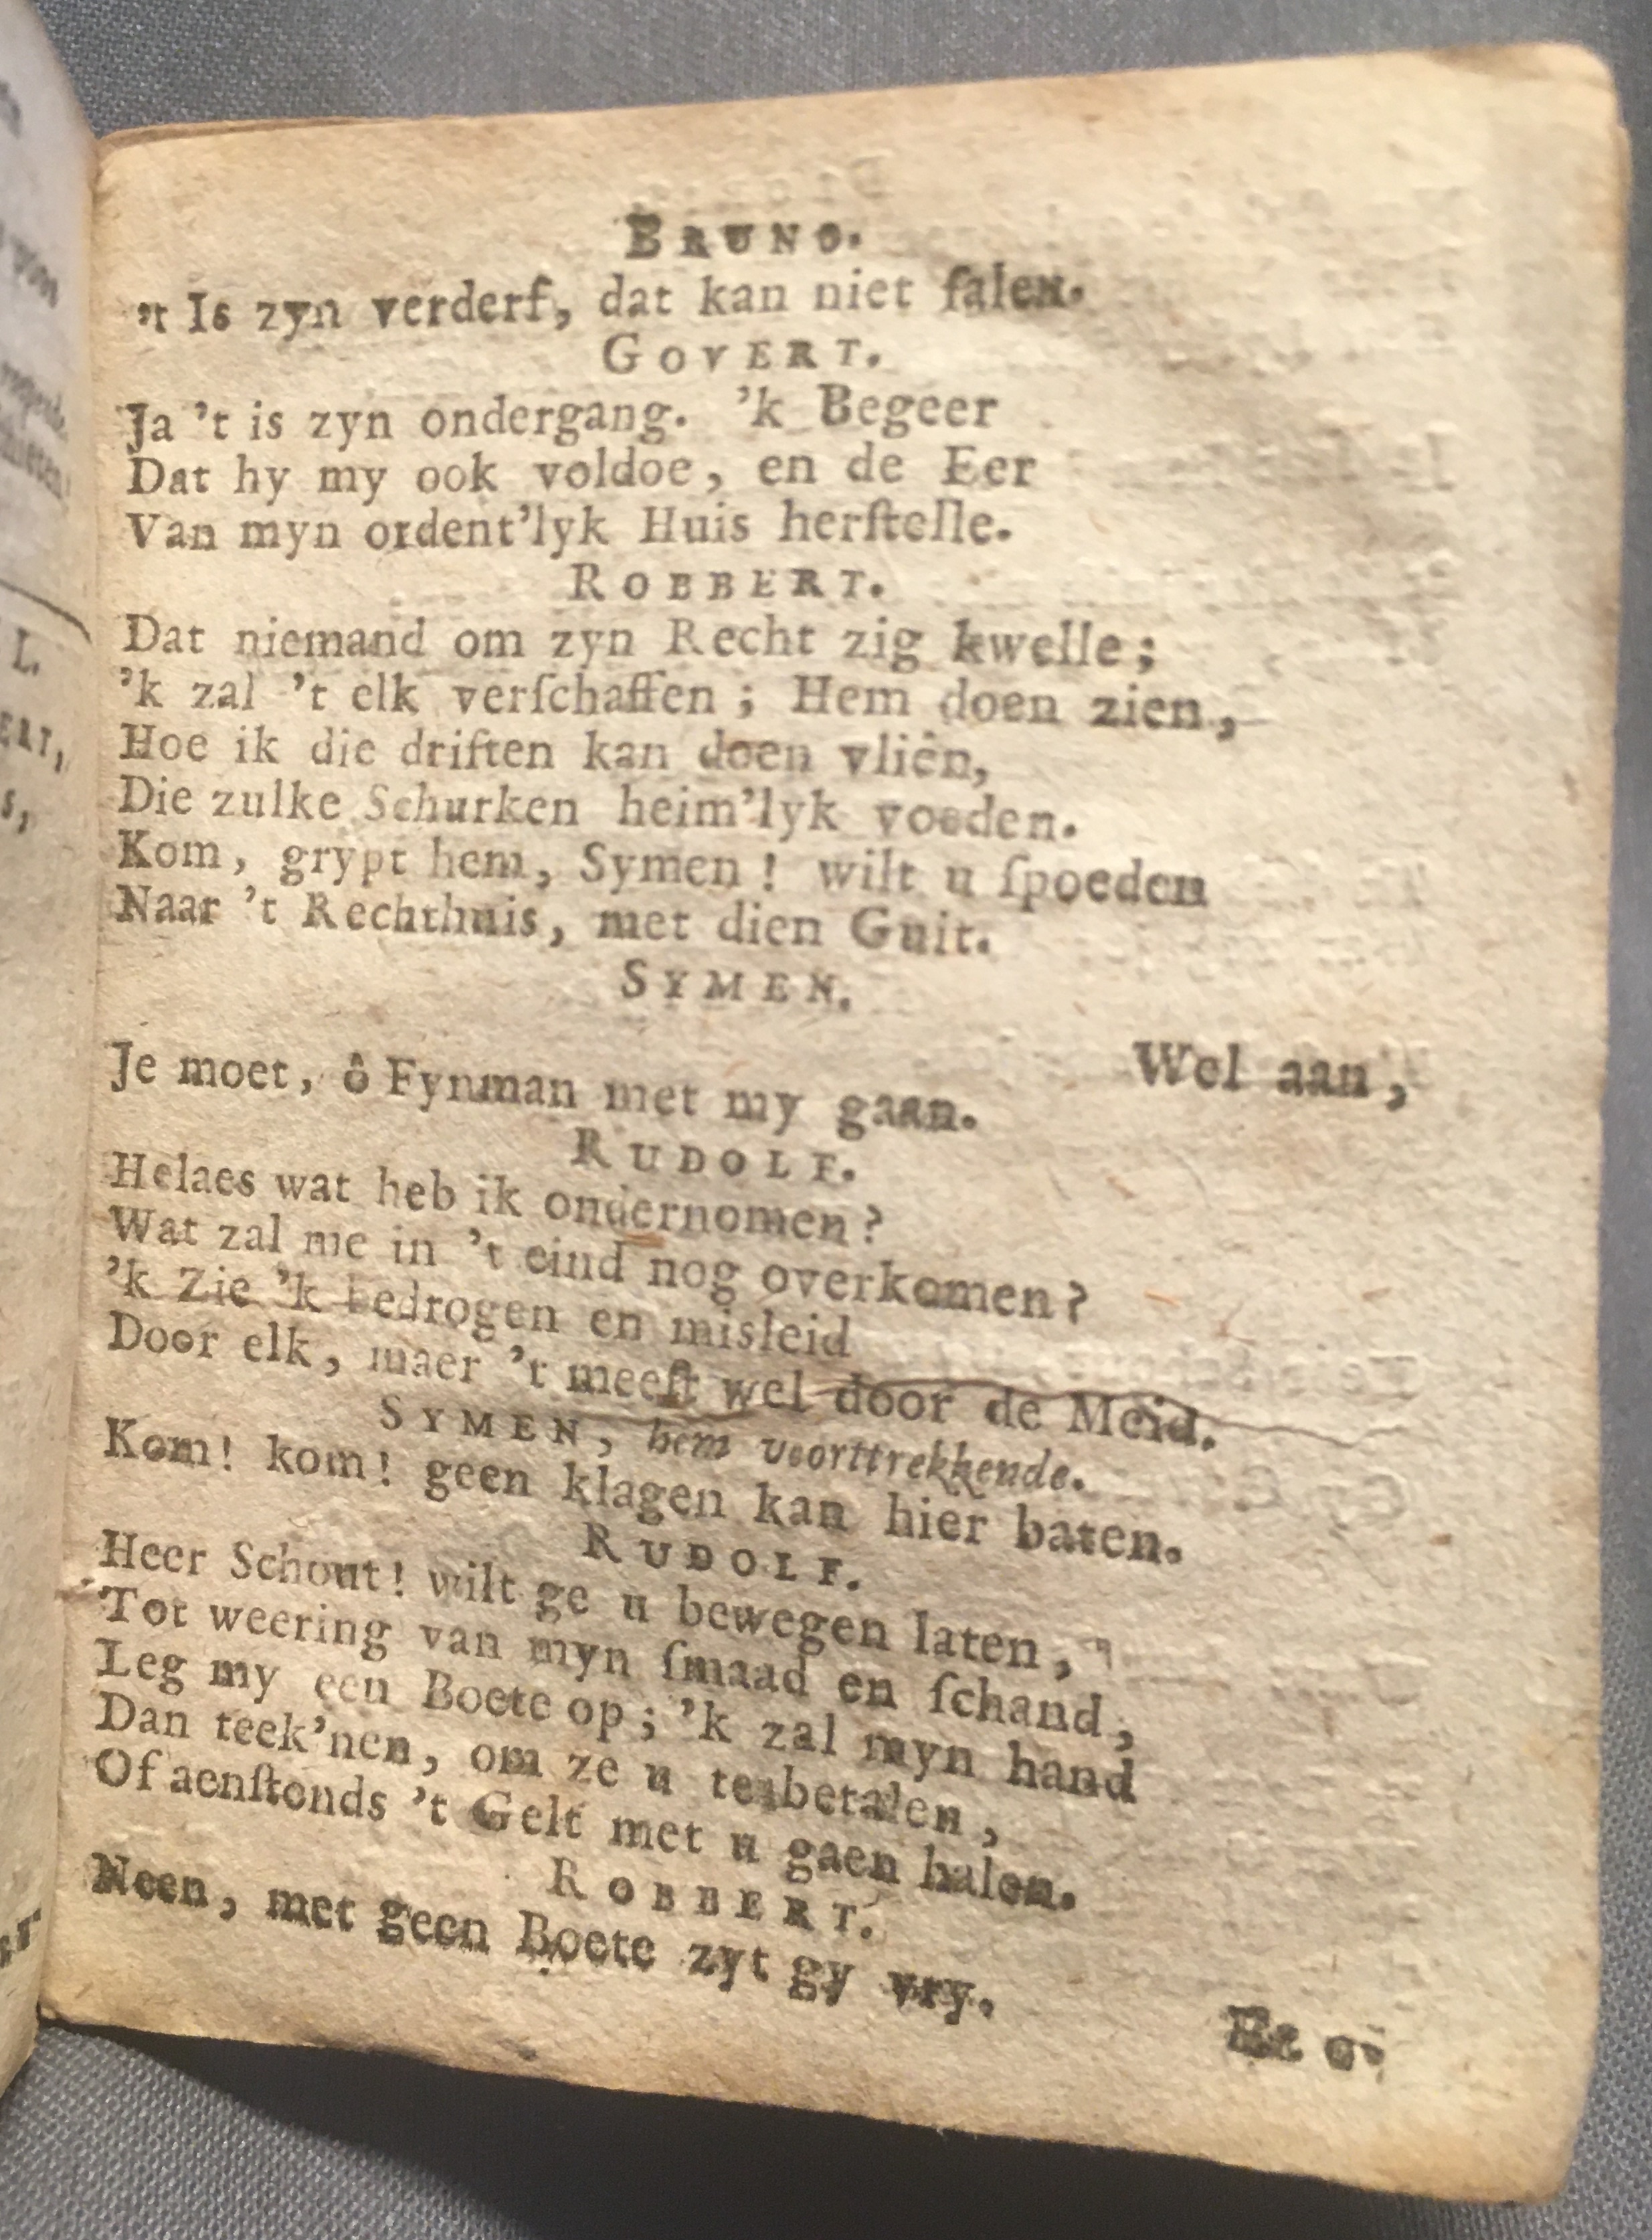 BRUNO.
't Is zyn verderf, dat kan niet falen.
GOVERT.
Ja 't is zyn ondergang. 'k Begeer
Dat hy my ook voldoe, en de Eer
Van myn ordent'lyk Huis herſtelle.
ROBBERT.
Dat niemand om zyn Recht zig kwelle;
'k zal 't elk verſchaffen; Hem doen zien,
Hoe ik die driften kan doen vliên,
Die zulke Schurken heim'lyk voeden.
Kom, grypt hem, Symen! wilt u ſpoeden
Naar 't Rechthuis, met dien Guit.
SYMEN.
Wel aan,
Je moet, ô Fynman met my gaan.
RUDOLF.
Helaes wat heb ik ondernomen?
Wat zal me in 't eind nog overkomen?
'k Zie 'k bedrogen en misleid
Door elk, maer 't meeſt wel door de Meid.
SYMEN, hem voorttrekkende.
Kom! kom! geen klagen kan hier baten.
RUDOLF.
Heer Schout! wilt ge u bewegen laten,
Tot weering van myn ſmaad en ſchand,
Leg my een Boete op; 'k zal myn hand
Dan teek'nen, om ze u te betalen,
Of aenſtonds 't Gelt met u gaen halen.
ROBBERT.
Neen, met geen Boete zyt gy vry.